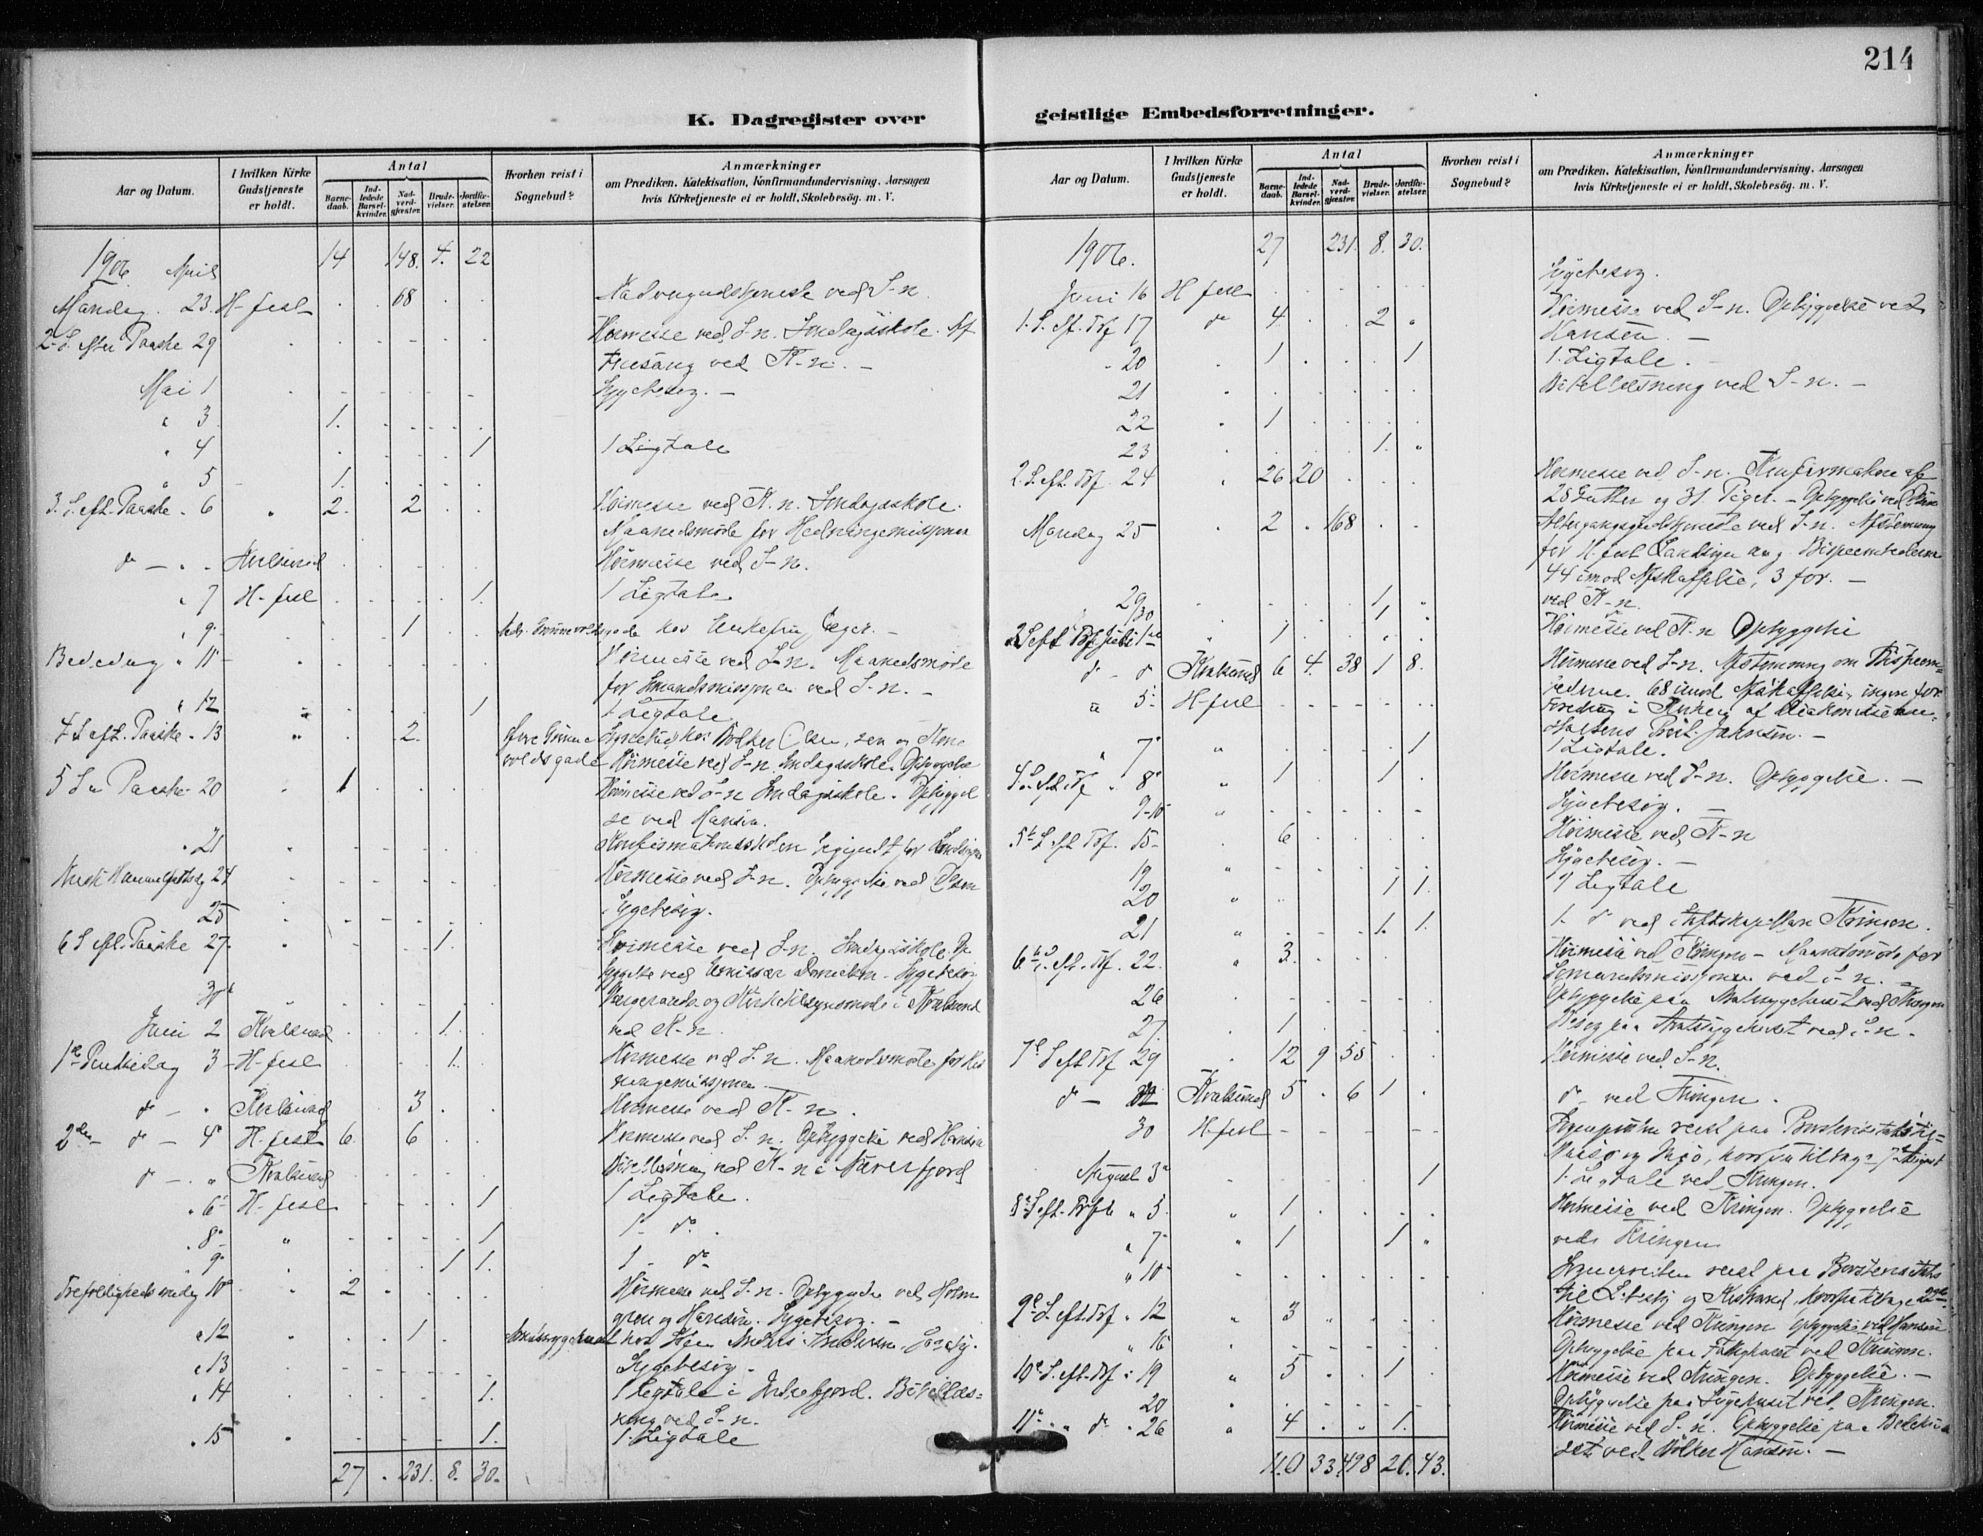 214
K. Dagregister over geistlige Embedsforretninger.
Aar og Datum. I hvilken Kirke Gudstjeneste er holdt. Antal Barne-daab. Ind-ledede Barsel-kvinder. Nad-verd-gjæster. Brude-vielser. Jordfæ-stelser. Hvorhen reist i Sognebud? Anmærkninger om Prædiken, Katekisation, Konfirmandundervisning, Aarsagen hvis Kirketjeneste ei er holdt, Skolebesøg. m. V.
1906 April 14 148. 4. 22
Mandag. 23. H-fest 68 Nadvergudstjeneste ved S-n
2 S. efter Paaske 29 Høimesse ved S-n. Søndagsskole. Af-
tensang ved K-n. —
Mai 1 Sygebesøg. —
" 3 1.
" 4 1 1 Ligtale
" 5 1.
3. S. eft. Paaske. 6 " 2. 2 Høimesse ved K-n. Søndagsskole.
Maanedsmøde for Hedningemissjonen
do — " Kvalsund Høimesse ved S-n.
" 7 H-fest 1. 1 Ligtale
" 9 1 hos Enkefru Jæger. —
Bededag " 11 Høimesse ved S-n. Maanedsmøde
for Indremissjonen ved S-n. —
" 12 1 1 Ligtale
4 S. eft. Paaske. 13 " 2.
voldsgade Høimesse ved S-n. Søndagsskole. Opbyggelse
5 S " Paaske 20 1 Høimesse ved S-n Søndagsskole. Opbyggel
se ved Hansen.
" 21 Konfirmationsskolen begyndt for Landsognet
Kristi Himmelfartsdag 24 Høimesse ved S-n. Opbyggelse ved Olsen
25 Sygebesøg.
6 S eft. Paaske 27. 1. Høimesse ved S-n. Søndagsskole. Op
byggelse ved Sygebesøg
30
Juni 2 Kvalsund 1. ved K-n.
1ste Pintsedag 3 H-fest 1. Høimesse ved S-n. Maanedsmøde for Hed
ningemissjonen.
do — " Kvalsund 3 Høimesse ved K-n.
2den — do — 4de H-fest 6. 6 Høimesse ved S-n. Opbyggelse ved Hansen
do — " Kvalsund Bibellæsning ved K-n i Neverfjord
" 6 H-fest 1 1 Ligtale.
" 8 " 1 1 - do.
" 9 1 1. 1 - do
Trefoldighedssøndag 10 2 Høimesse ved S-n. Opbyggelse ved Holm-
gren og Hansen. Sygebesøg. —
" 12 1
" 13 Sygebesøg.
" 14 1. 1 Ligtale i Bibellæs=
ning ved S-n.
" 15 1. 1. Ligtale
27 231. 8. 30.
Aar og Datum. I hvilken Kirke Gudstjeneste er holdt. Antal Barne-daab. Ind-ledede Barsel-kvinder. Nad-verd-gjæster. Brude-vielser. Jordfæ-stelser. Hvorhen reist i Sognebud? Anmærkninger om Prædiken, Katekisation, Konfirmandundervisning, Aarsagen hvis Kirketjeneste ei er holdt, Skolebesøg. m. V.
1906. 27 231. 8. 30.
Juni 16 H fest Sygebesøg.
1. S. eft. Tref 17 do 4 2 Høimesse ved S-n. Opbyggelse ved
Hansen. —
" 20 1 1 1. Ligtale. —
21 Bibellæsning ved S-n. —
22 1
23 1.
2. S. eft. Tref. 24 26 20 Høimesse ved S-n. Konfirmation af
28 Gutter og 31 Piger. — Opbyggelse ved
Mandag 25 2 168 Altergangsgudstjeneste ved S-n. Afstemning
for H.fest Landsogn ang. Bispeembederne
44 imod Afskaffelse, 3 for. —
29 1 ved K-n.
30 1
3 S eft Tref Juli 1ste 1 Høimesse ved K-n Opbyggelse
do - do Kvalsund 6 4. 38 1 8. Høimesse ved S-n. Afstemning om Bispeem=
bederne. 68 imod Afskaffelse, ingen for
" 5 H-fest Foredrag i Kirken af
Johnson. —
" 7 " 1 1 Ligtale.
4. S. eft. Tref " 8 " 1 1. Høimesse ved S-n. Opbyggelse. —
9-10 " Sygebesøg. —
5te S. eft Tref. 15 6 Høimesse ved K-n
Sygebesøg. —
19 " 1 1. 1 Ligtale
20
21 " 1. 1. 1. do ved
6te S. eft. Tref. 22. " 3. Høimesse ved Kringen — Maanedsmøde for
Indremissjonen ved S-n. —
26 Opbyggelse paa ved Kringen
27. 1 Besøg paa Amtssygehuset ved S-n.
7de S eft Tref 29 12 9 55 Høimesse ved S-n.
do — Kvalsund 5 6 1 do — ved Kringen.
30 H-fest Sognepresten reist paa
August 3 1 1. Ligtale ved Kringen.
8de S. eft. Tref " 5. " 1 Høimesse ved Kringen. Opbyggelse
" 7 " 1 1 ved Kringen
" 10 Sognepresten reist paa
9de S. eft. Tref " 12 " 3
Høimesse ved Kringen Opbyggelse ved Hansen
" 16 Opbyggelse paa Fattighuset ved Kringen.
10de S. eft. Tref " 19 " 5 1 Høimesse ved Kringen. Opbyggelse. —
20 Opbyggelse paa Sygehuset ved Kringen.
11te " do " 26 " 4 1. Høimesse ved S-n. Opbyggelse paa Bedehu
set ved Bolker Hansen. —
110 33 498 20. 43.